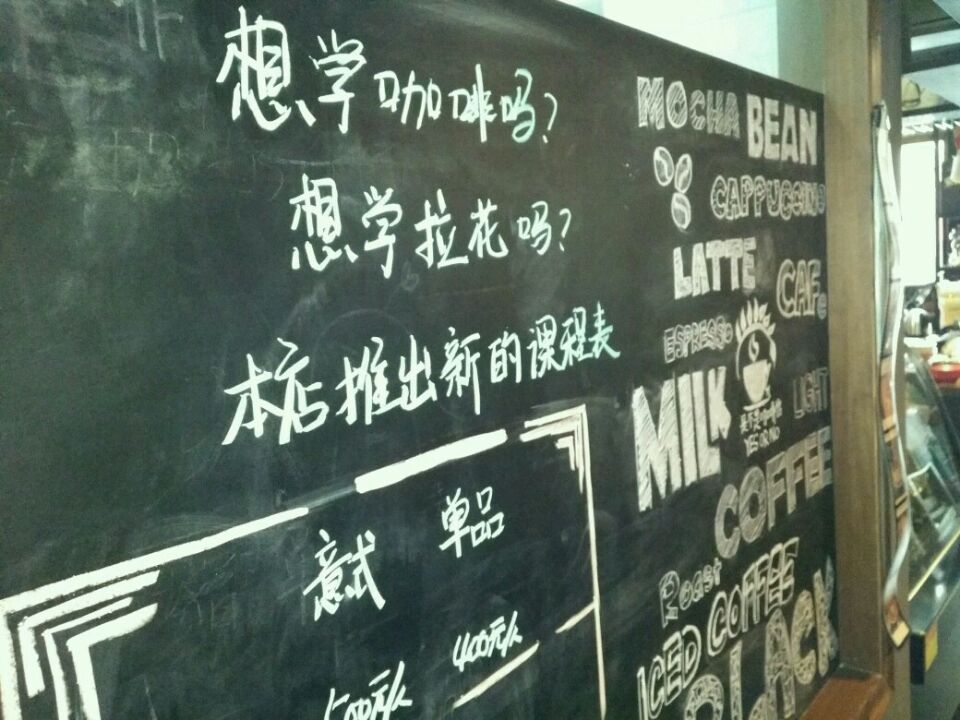 想学咖啡吗?
想学拉花吗?
本店推出新的课程表
意式 单品
500元/人 400元/人
MOCHA BEAN
CAPPUCCINO
LATTE CAFe
ESPRESSO
MILK LIGHT
是不是咖啡馆
YES OR NO
COFFEE
Roast
ICED COFFEE
BLACK